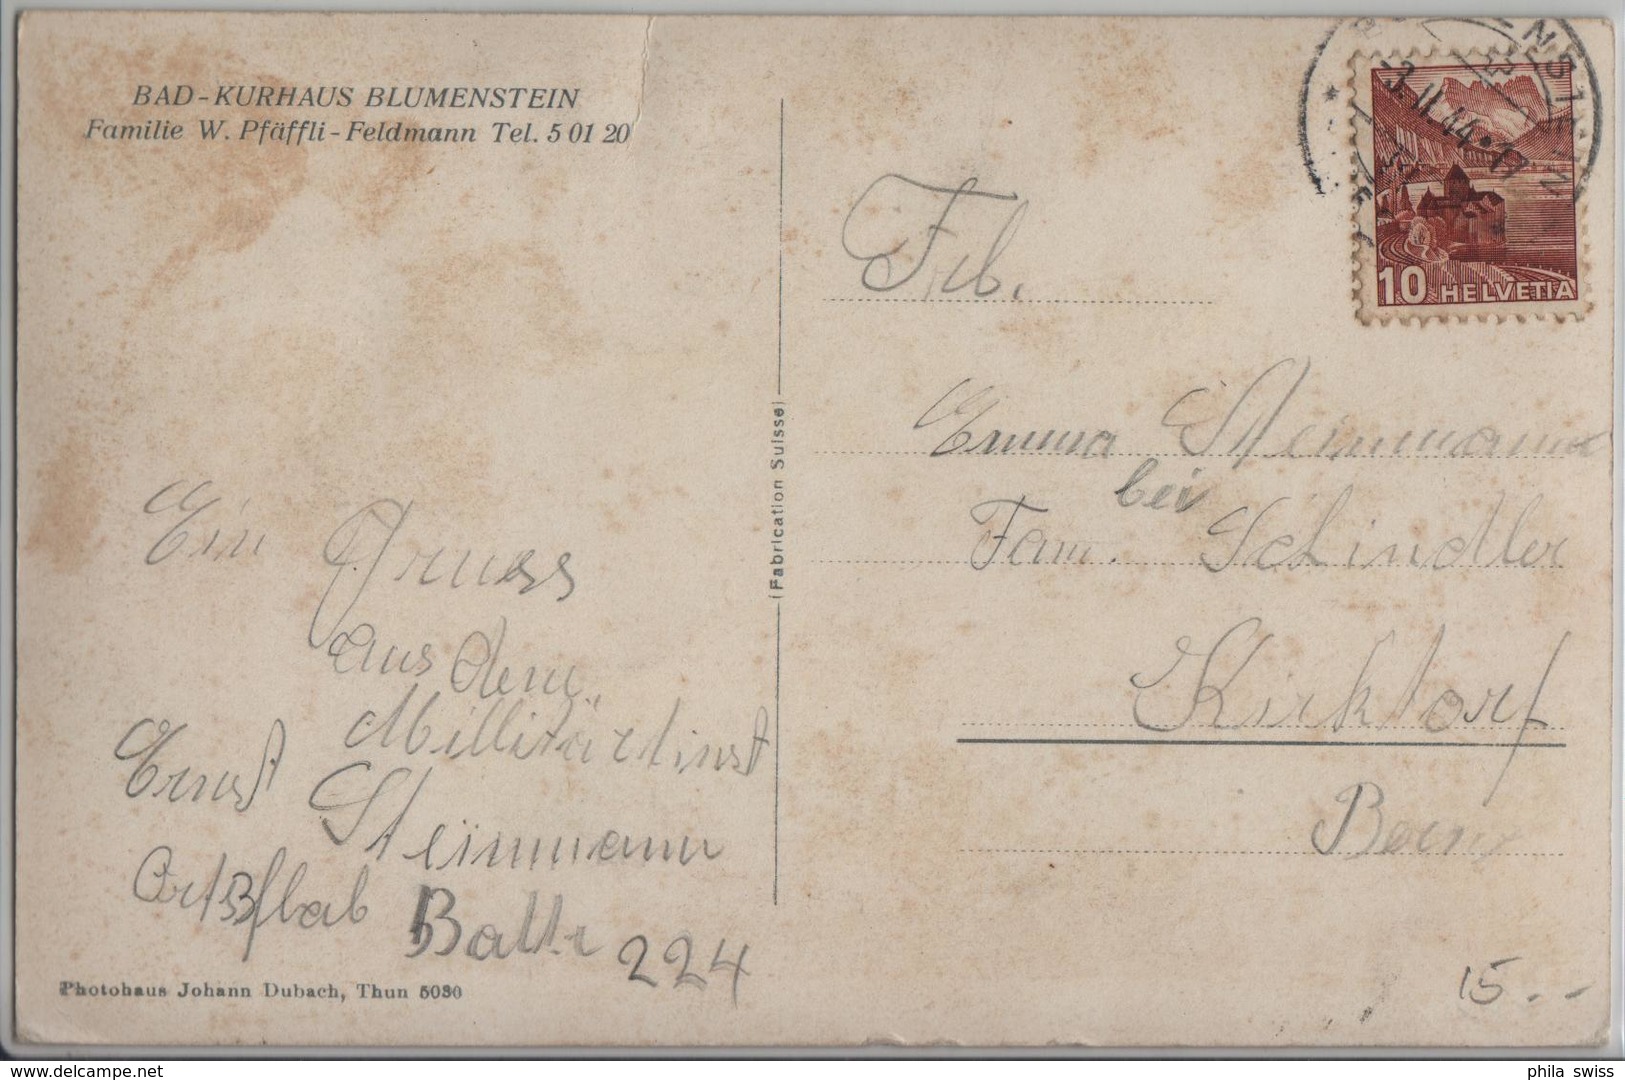 BAD-KURHAUS BLUMENSTEIN
Familie W. Pfäffli-Feldmann Tel. 5 01 20
Ein Gruss
aus dem
Millitärtinst
Ernst Steinmann
Battr 224
Photohaus Johann Dubach, Thun 5030
(Fabrication Suisse)
3.II.44
10 HELVETIA
Frl.
Emma Steinmann
bei
Fam. Schindler
Kirktorf
Bern
15.--
phila swiss